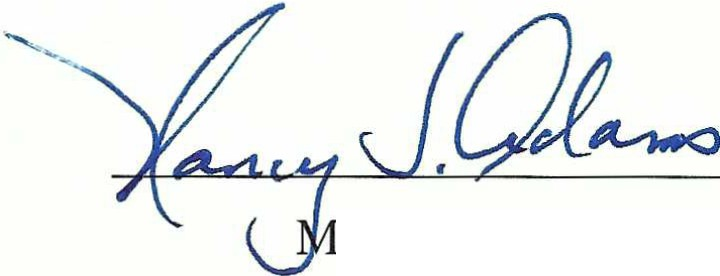 Nancy J. Adams
M